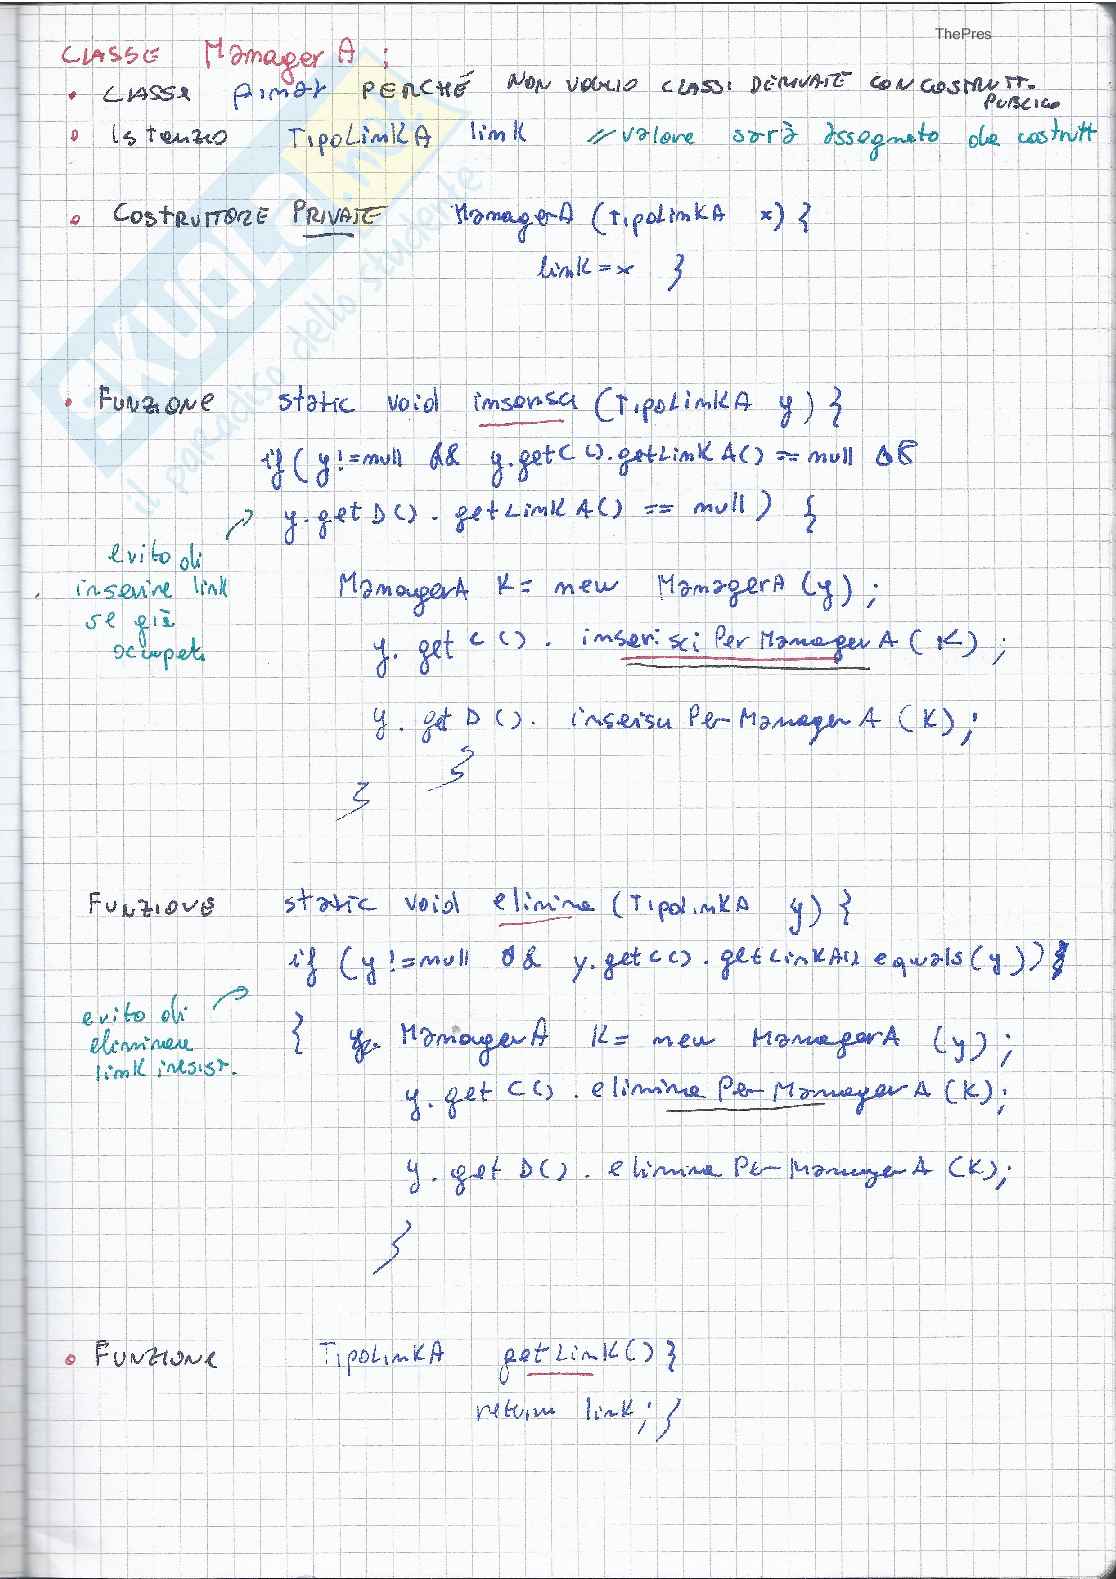 ThePres
CLASSE ManagerA ;
• CLASSE final PERCHÉ NON VOGLIO CLASSI DERIVATE CON COSTRUTT. PUBLICO
• Istanzio TipoLinkA link // valore sarà assegnato da costrutt
• COSTRUTTORE PRIVATE ManagerA (TipoLinkA x) {
link = x }
• FUNZIONE static void inserisci (TipoLinkA y) {
if ( y != null && y.getC().getLinkA() == null &&
y.getD().getLinkA() == null ) {
evito di
inserire link
se già
occupati
ManagerA K = new ManagerA (y) ;
y.getC().inserisciPerManagerA (K) ;
y.getD().inserisciPerManagerA (K) ;
}
}
FUNZIONE static void elimina (TipoLinkA y) {
if ( y != null && y.getC().getLinkA() equals(y))
evito di
eliminare
link inesist.
{ ManagerA K = new ManagerA (y) ;
y.getC().eliminaPerManagerA (K) ;
y.getD().eliminaPerManagerA (K) ;
}
• FUNZIONE TipoLinkA getLink() {
return link ; }
SKUOLA.net
il paradiso dello studente